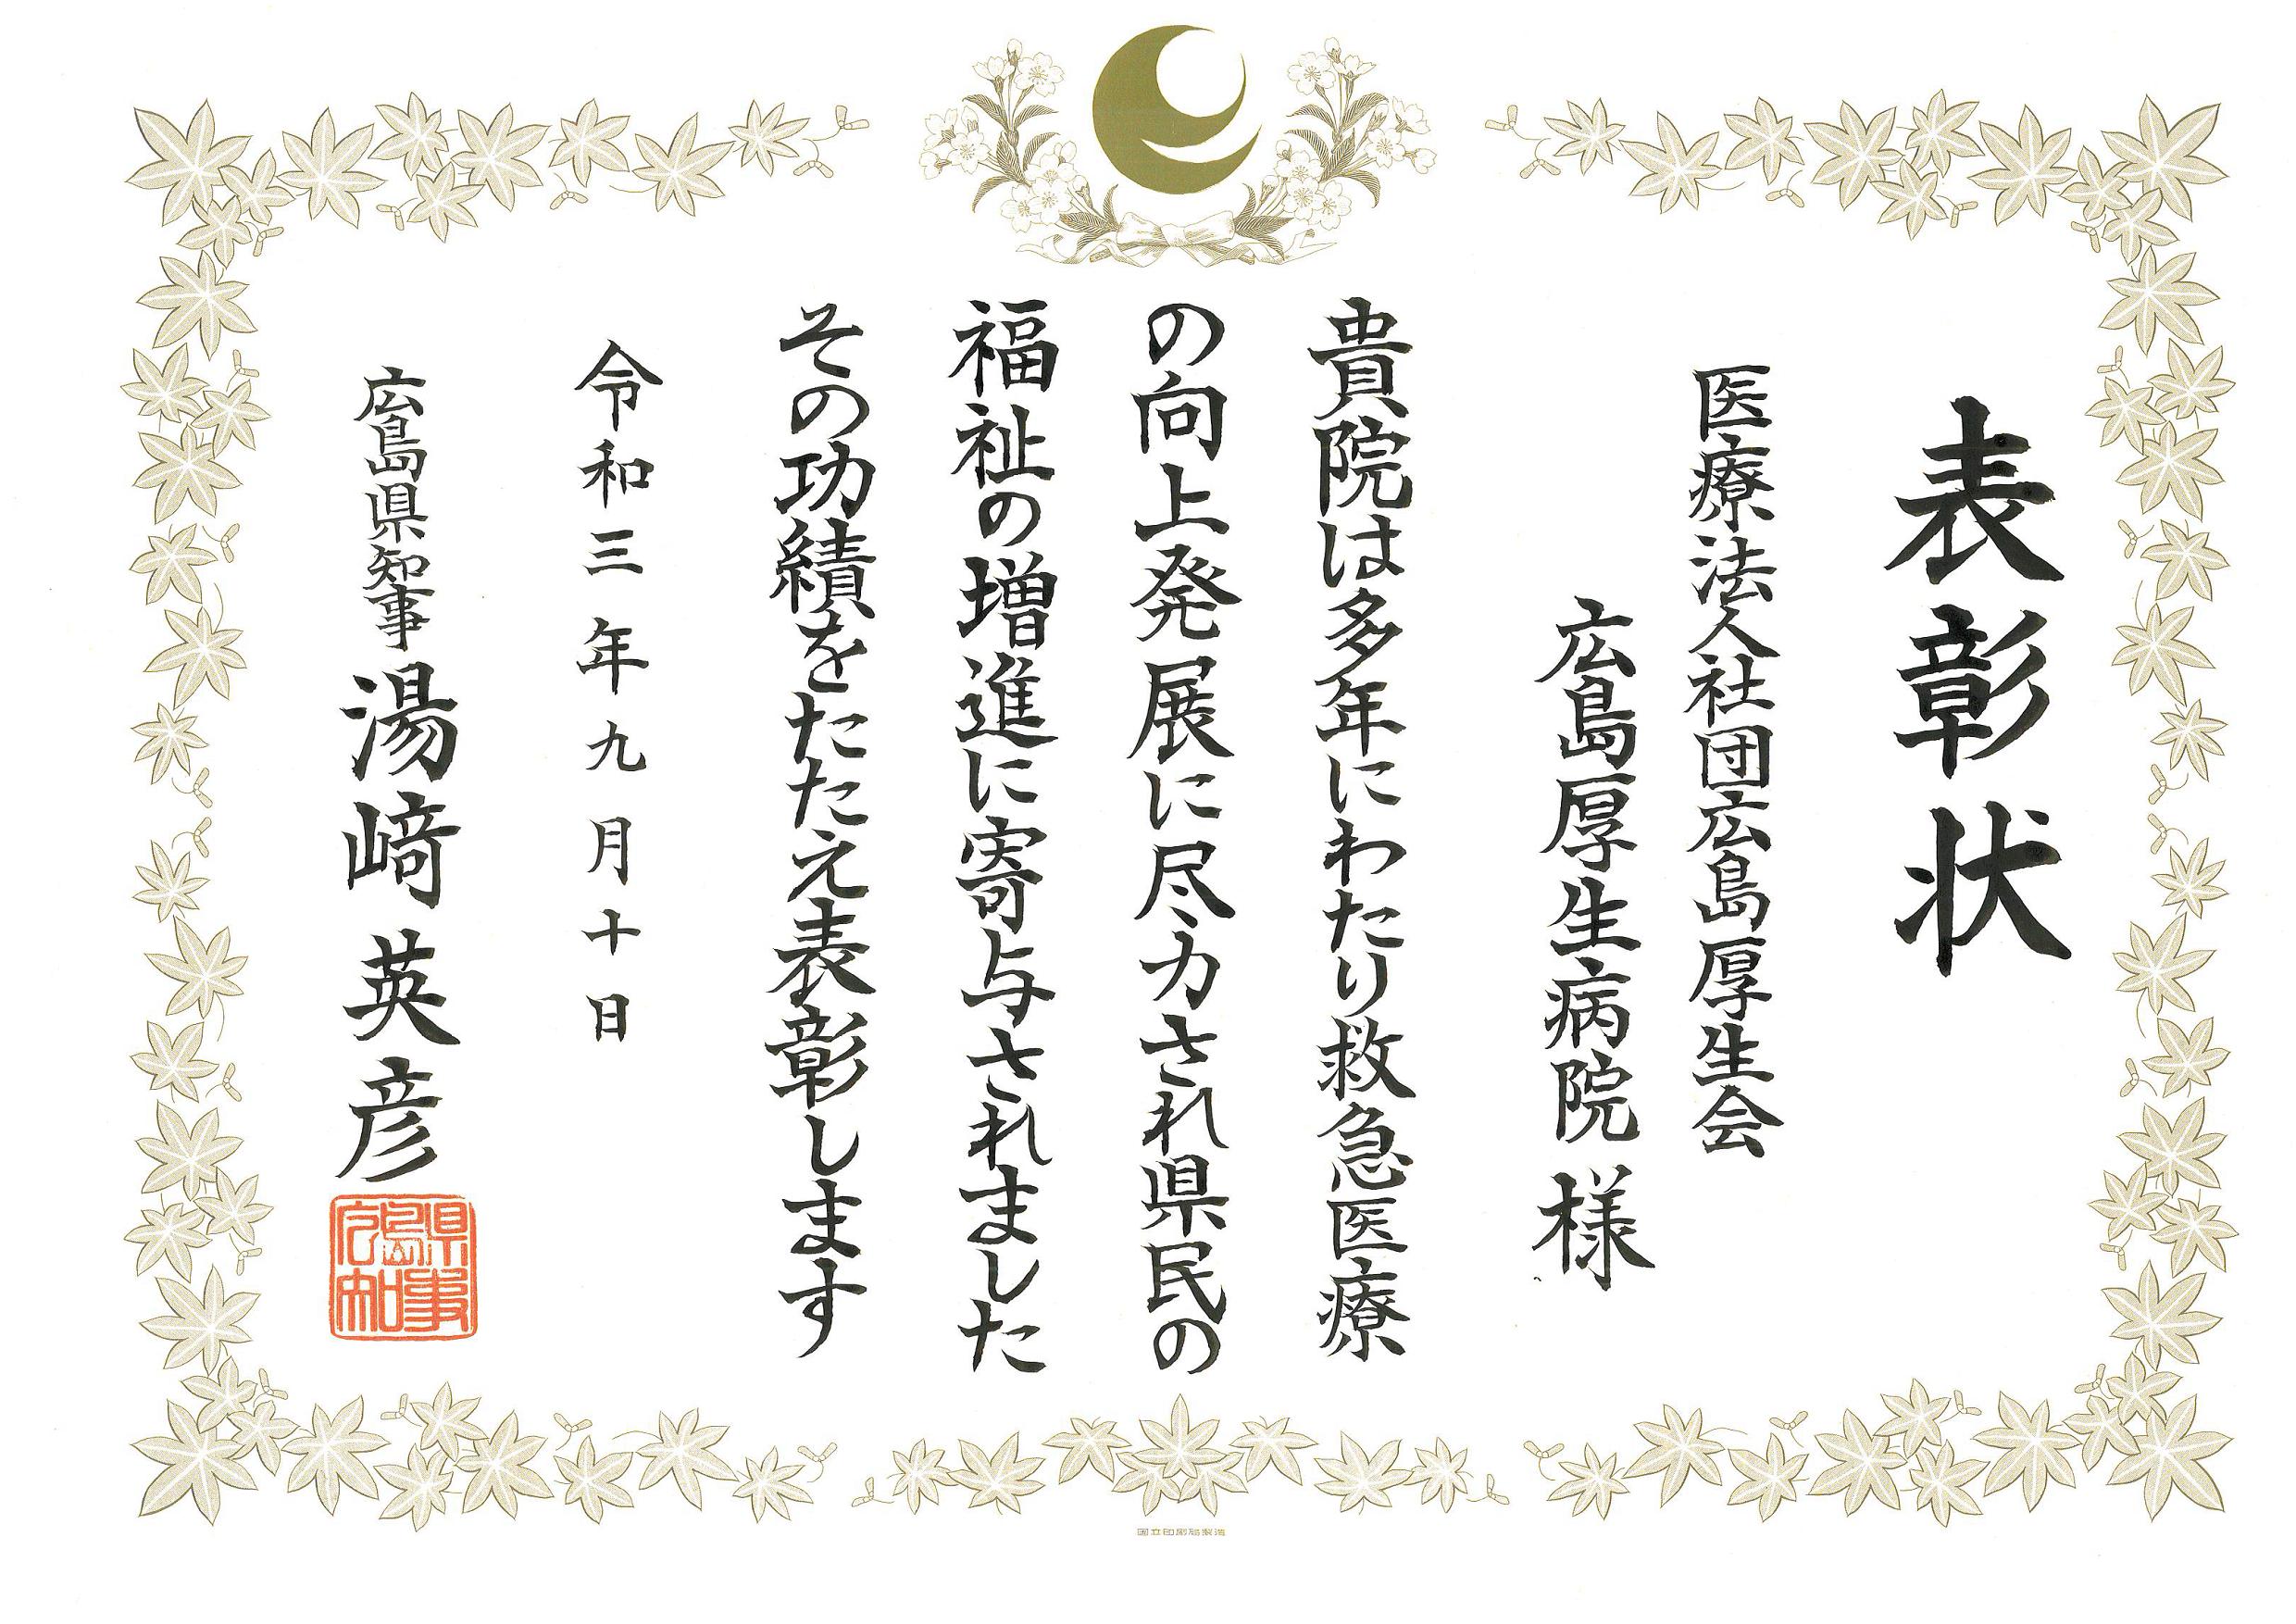 表彰状
医療法人社団広島厚生会
広島厚生病院 様
貴院は多年にわたり救急医療
の向上発展に尽力され県民の
福祉の増進に寄与されました
その功績をたたえ表彰します
令和三年九月十日
広島県知事 湯﨑英彦
広島県知事
国立印刷局製造